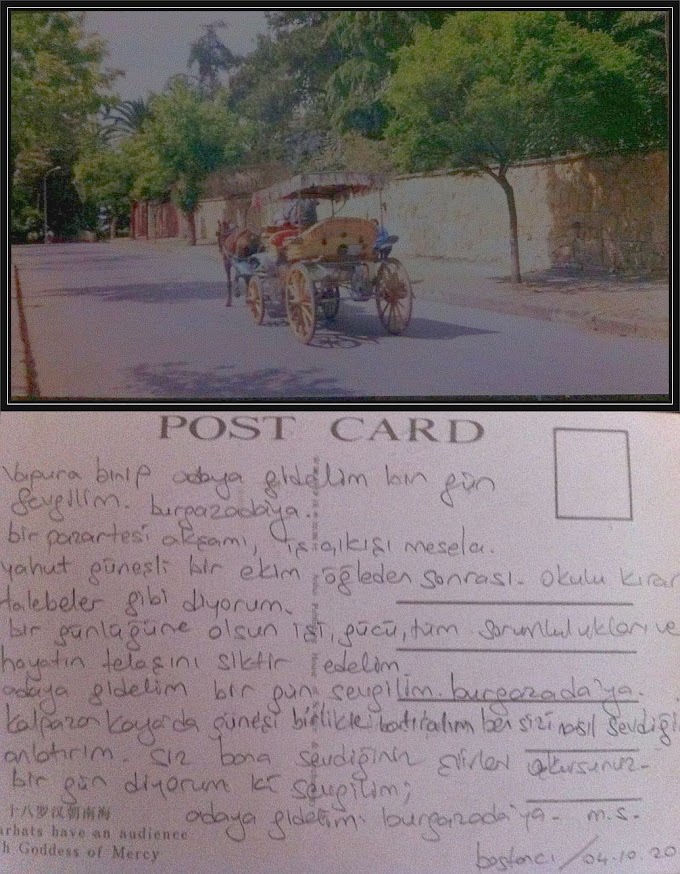 POST CARD
Vapura binip adaya gidelim bir gün
sevgilim. burgazada'ya.
bir pazartesi akşamı, iş çıkışı mesela.
yahut güneşli bir ekim öğleden sonrası. okulu kıran
talebeler gibi diyorum.
bir günlüğüne olsun işi, gücü, tüm sorumlulukları ve
hayatın telaşını siktir edelim
adaya gidelim bir gün sevgilim. burgazada'ya.
kalpazankaya'da güneşi birlikte batıralım ben sizi nasıl sevdiği
anlatırım. siz bana sevdiğiniz şiirleri okursunuz.
bir gün diyorum ki sevgilim;
adaya gidelim. burgazada'ya. m.s.
bostancı / 04.10.20
十八罗汉朝南海
arhats have an audience
h Goddess of Mercy